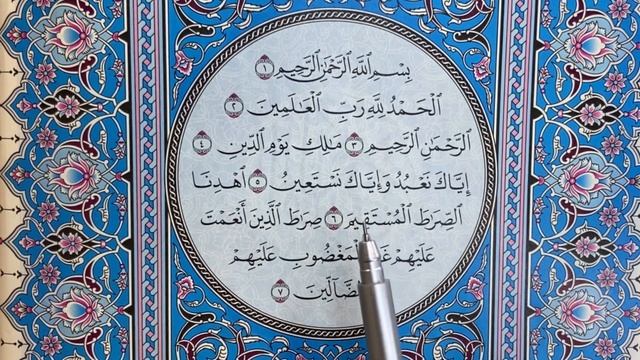 بِسْمِ ٱللَّهِ ٱلرَّحْمَٰنِ ٱلرَّحِيمِ ١
ٱلْحَمْدُ لِلَّهِ رَبِّ ٱلْعَٰلَمِينَ ٢
ٱلرَّحْمَٰنِ ٱلرَّحِيمِ ٣ مَٰلِكِ يَوْمِ ٱلدِّينِ ٤
إِيَّاكَ نَعْبُدُ وَإِيَّاكَ نَسْتَعِينُ ٥ ٱهْدِنَا
ٱلصِّرَٰطَ ٱلْمُسْتَقِيمَ ٦ صِرَٰطَ ٱلَّذِينَ أَنْعَمْتَ
عَلَيْهِمْ لْمَغْضُوبِ عَلَيْهِمْ
ضَّآلِّينَ ٧